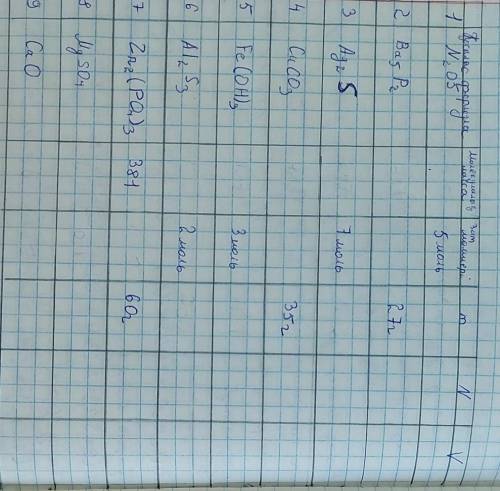 формула молекулалық масса зат мөлшері m N V
1 N2O5 5 моль
2 Ba3P2 27г
3 Ag2S 7 моль
4 CuCO3 35г
5 Fe(OH)3 3 моль
6 Al2S3 2 моль
7 Zn2(PO4)3 381 60г
8 MgSO4
9 CaO